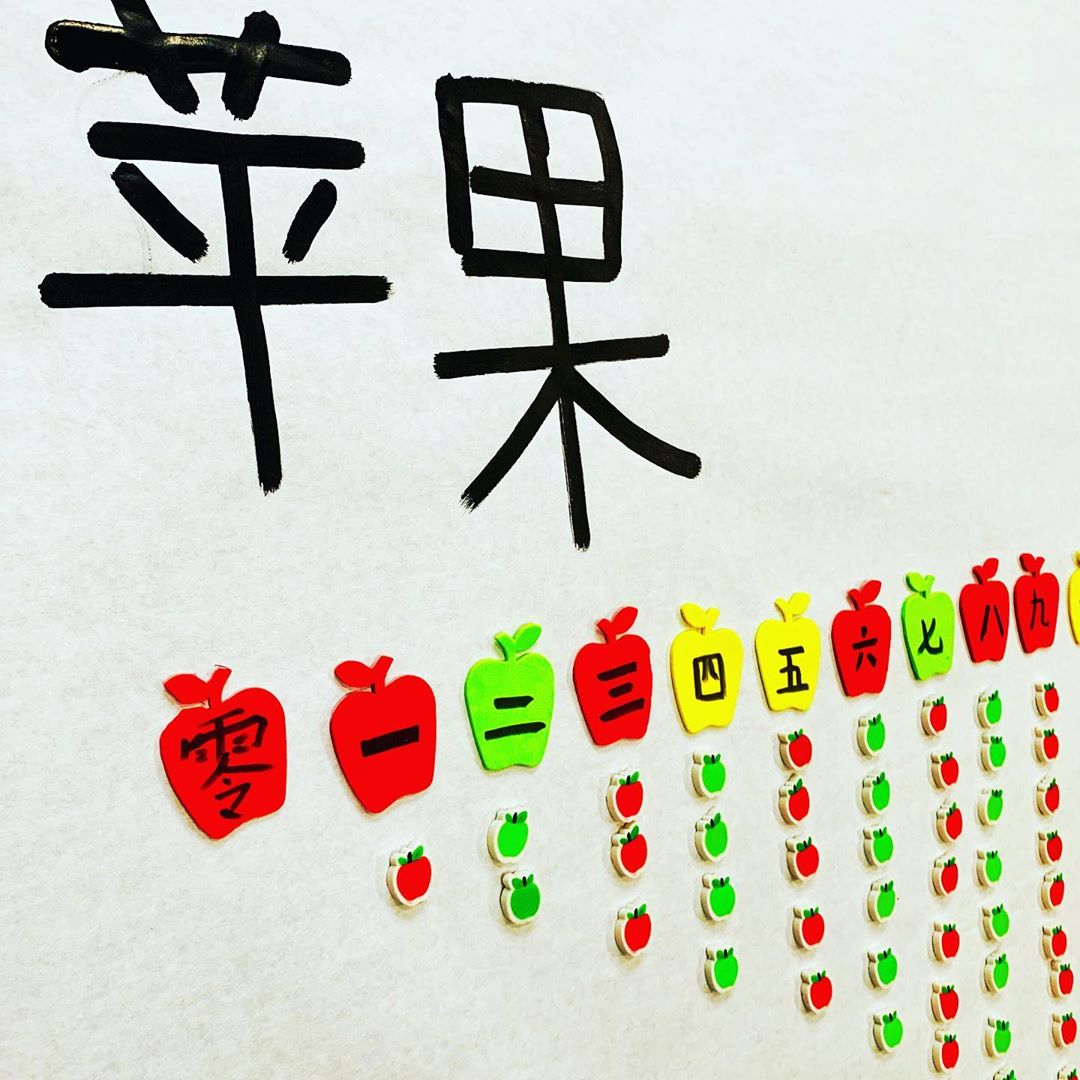 苹果
零 一 二 三 四 五 六 七 八 九